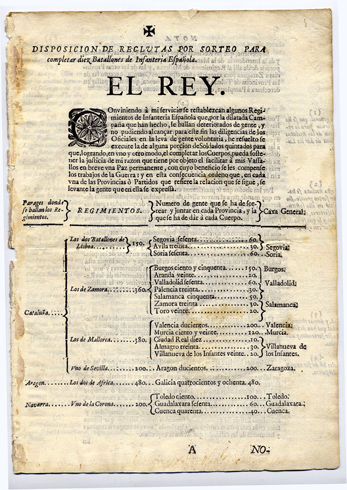 DISPOSICION DE RECLUTAS POR SORTEO PARA
completar diez Batallones de Infanteria Española.
EL REY.
COnviniendo à mi servicio se restablezcan algunos Regi-
mientos de Infanteria Española que, por la dilatada Cam-
paña que han hecho, se hallan deteriorados de gente, y
no pudiendo alcançar para este fin las diligencias de los Ofi-
ciales en la leva de gente voluntaria, he resuelto se
execute la de alguna porcion de Soldados quintados para
que, logrando, en vno, y otro modo, el completar los Cuerpos, pueda soste-
ner la justicia de mi razon que tiene por objeto el facilitar à mis Vassa-
llos en breve vna Paz permanente, con cuyo beneficio se les compense
los trabajos de la Guerra; y en esta consequencia, ordeno que, en cada
vna de las Provincias ò Partidos que refiere la relacion que se sigue, se
levante la gente que en ella se expressa.
Parages donde se hallan los Regimientos.
REGIMIENTOS.
Numero de gente que se ha de sor-
tear y juntar en cada Provincia, y la
que se ha de dár à cada Cuerpo.
Caxa General;
Cataluña.
Los dos Batallones de Lisboa. 150.
Segovia sesenta 60.
Avila treinta. 30.
Soria sesenta 60.
Segovia.
Soria.
Los de Zamora. 360.
Burgos ciento y cinquenta. 150.
Aranda veinte. 20.
Valladolid sesenta 60.
Palencia treinta 30.
Salamanca cinquenta. 50.
Zamora treinta 30.
Toro veinte. 20.
Burgos.
Valladolid.
Salamanca.
Los de Mallorca. 380.
Valencia ducientos 200.
Murcia ciento y veinte 120.
Ciudad Real diez 10.
Almagro treinta 30.
Villanueva de los Infantes veinte. 20.
Valencia.
Murcia.
Villanueva de
los Infantes.
Vno de Sevilla 200.
Aragon ducientos. 200.
Zaragoza.
Aragon.
Los dos de Africa. 480.
Galicia quatrocientos y ochenta. 480.
Navarra.
Vno de la Corona. 200.
Toledo ciento. 100.
Guadalaxara sesenta 60.
Cuenca quarenta. 40.
Toledo.
Guadalaxara.
Cuenca.
A
NO-